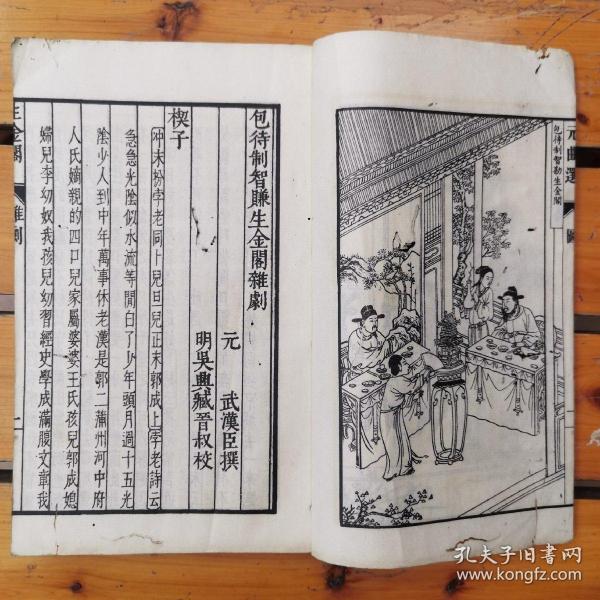 元曲選
圖
包待制智勘生金閣
包待制智賺生金閣雜劇
元 武漢臣撰
明吳興臧晉叔校
楔子
冲末扮孛老同卜兒旦兒正末郭成上孛老詩云
急急光陰似水流等閒白了少年頭月過十五光
陰少人到中年萬事休老漢是郭二蒲州河中府
人氏嫡親的四口兒家屬婆婆王氏孩兒郭成媳
婦兒李幼奴我孩兒幼習經史學成滿腹文章我
生金閣
雜劇
一
孔夫子旧书网
www.kongfz.com